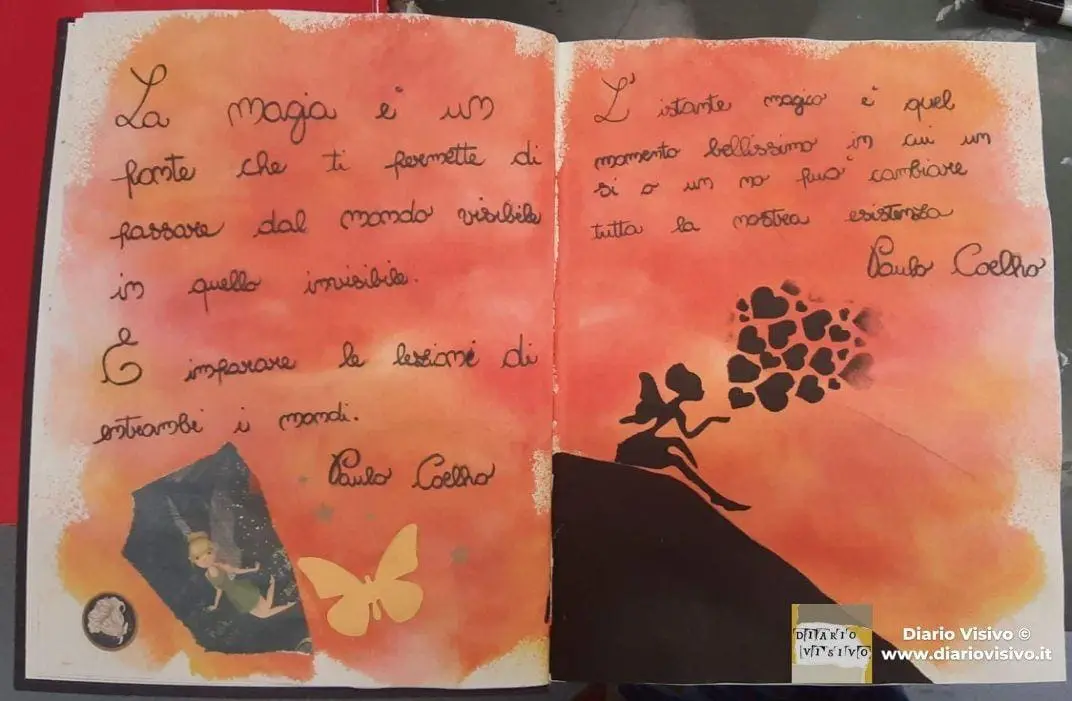 La magia e' un
ponte che ti permette di
passare dal mondo visibile
in quello invisibile.
E imparare le lezioni di
entrambi i mondi.
Paulo Coelho
L'istante magico e' quel
momento bellissimo in cui un
si o un no puo' cambiare
tutta la nostra esistenza
Paulo Coelho
DIARIO
VISIVO
Diario Visivo ©
www.diariovisivo.it